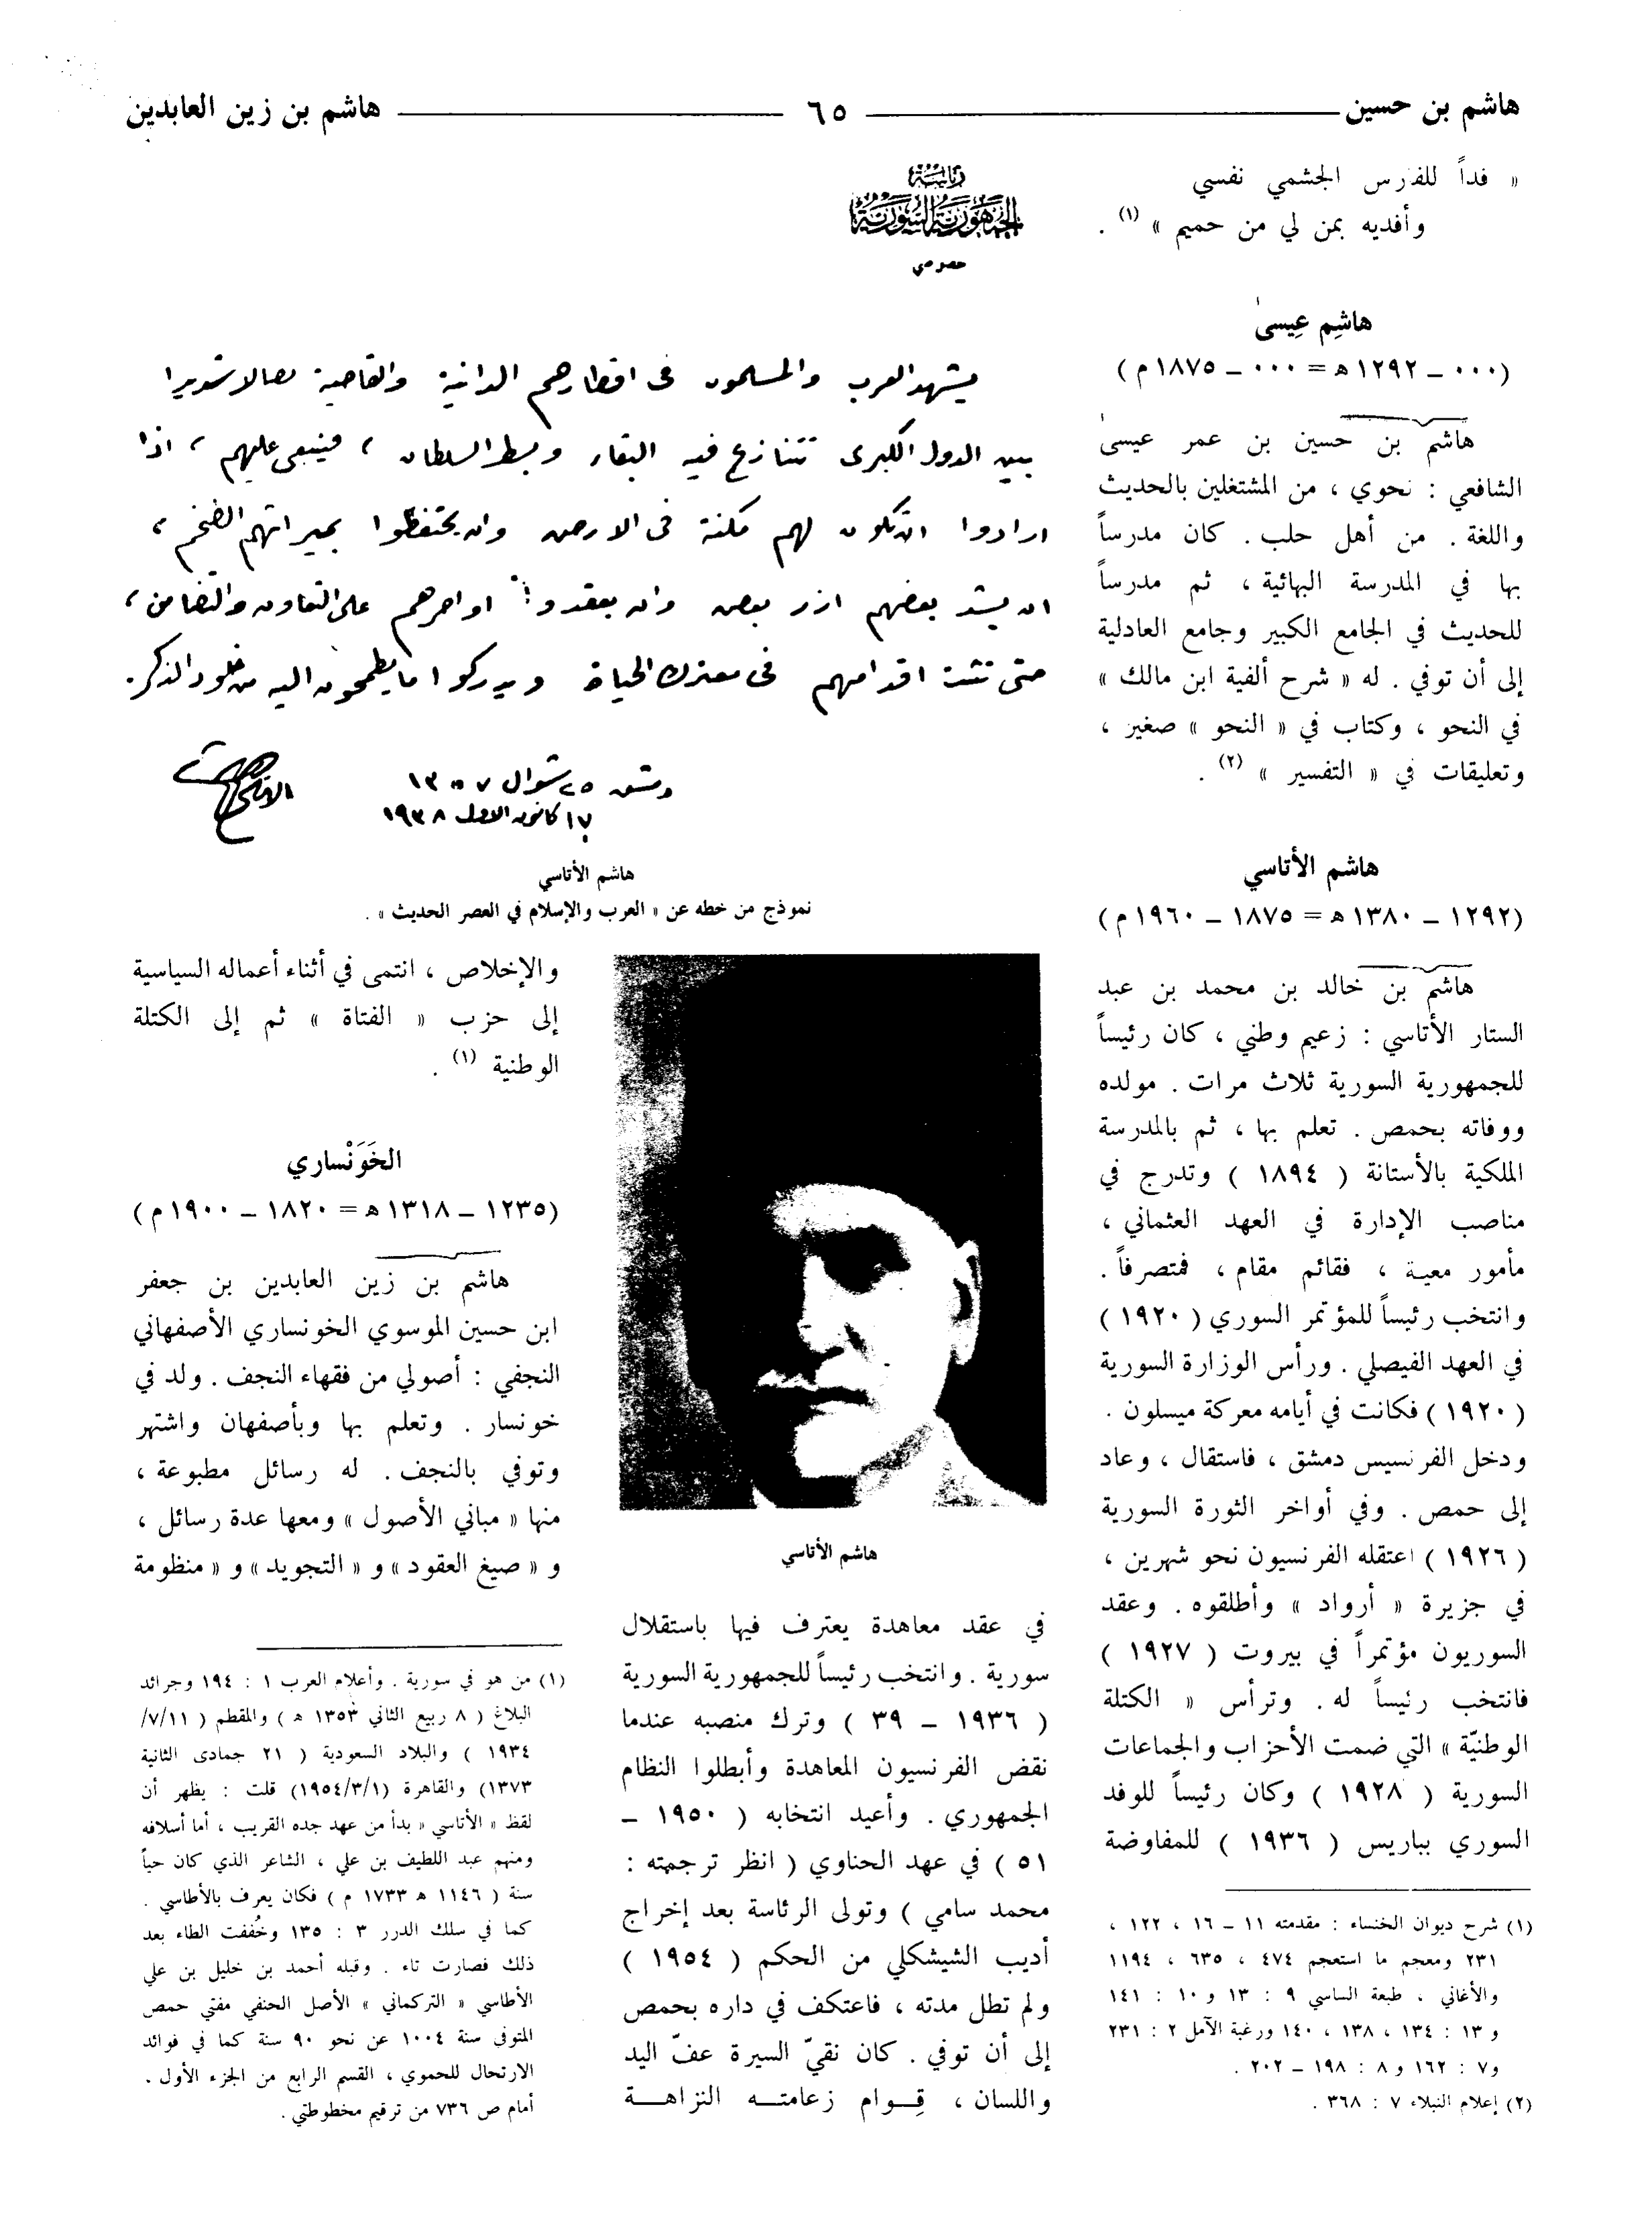 هاشم بن حسين
٦٥
هاشم بن زين العابدين
« فداً للفارس الجشمي نفسي
وأفديه بمن لي من حميم » (١) .
هاشِم عِيسىٰ
(٠٠٠ ـ ١٢٩٢ ه‍ = ٠٠٠ ـ ١٨٧٥ م)
هاشم بن حسين بن عمر عيسىٰ
الشافعي : نحوي ، من المشتغلين بالحديث
واللغة . من أهل حلب . كان مدرساً
بها في المدرسة البهائية ، ثم مدرساً
للحديث في الجامع الكبير وجامع العادلية
إلى أن توفي . له « شرح ألفية ابن مالك »
في النحو ، وكتاب في « النحو » صغير ،
وتعليقات في « التفسير » (٢) .
هاشم الأتاسي
(١٢٩٢ ـ ١٣٨٠ ه‍ = ١٨٧٥ ـ ١٩٦٠ م)
هاشم بن خالد بن محمد بن عبد
الستار الأتاسي : زعيم وطني ، كان رئيساً
للجمهورية السورية ثلاث مرات . مولده
ووفاته بحمص . تعلم بها ، ثم بالمدرسة
الملكية بالأستانة ( ١٨٩٤ ) وتدرج في
مناصب الإدارة في العهد العثماني ،
مأمور معية ، فقائم مقام ، فمتصرفاً .
وانتخب رئيساً للمؤتمر السوري ( ١٩٢٠ )
في العهد الفيصلي . ورأس الوزارة السورية
( ١٩٢٠ ) فكانت في أيامه معركة ميسلون .
ودخل الفرنسيس دمشق ، فاستقال ، وعاد
إلى حمص . وفي أواخر الثورة السورية
( ١٩٢٦ ) اعتقله الفرنسيون نحو شهرين ،
في جزيرة « أرواد » وأطلقوه . وعقد
السوريون مؤتمراً في بيروت ( ١٩٢٧ )
فانتخب رئيساً له . وترأس « الكتلة
الوطنيّة » التي ضمت الأحزاب والجماعات
السورية ( ١٩٢٨ ) وكان رئيساً للوفد
السوري بباريس ( ١٩٣٦ ) للمفاوضة
(١) شرح ديوان الخنساء : مقدمته ١١ ـ ١٦ ، ١٢٢ ،
٢٣١ ومعجم ما استعجم ٤٧٤ ، ٦٣٥ ، ١١٩٤
والأغاني ، طبعة الساسي ٩ : ١٣ و ١٠ : ١٤١
و ١٣ : ١٣٤ ، ١٣٨ ، ١٤٠ ورغبة الآمل ٢ : ٢٣١
و٧ : ١٦٢ و ٨ : ١٩٨ ـ ٢٠٢ .
(٢) إعلام النبلاء ٧ : ٣٦٨ .
رئاسة
الجمهورية السورية
خصوصي
يشهد العرب والمسلمون في اقطارهم الدانية والقاصية نضالا شديدا
بين الدول الكبرى تتنازع فيه البقاء وبسط السلطان ، فينبغي عليهم ، اذا
ارادوا ان تكون لهم مكنة في الارض وان يحتفظوا بميراثهم الضخم ،
ان يشد بعضهم ازر بعض وان يعقدوا اواصرهم على التعاون والتضامن ،
حتى تثبت اقدامهم في معترك الحياة ويدركوا ما يطمحون اليه من خلود الذكر .
دمشق ٢٥ شوال ١٣٥٧
١٧ كانون الاول ١٩٣٨
هاشم الأتاسي
نموذج من خطه عن « العرب والإسلام في العصر الحديث » .
هاشم الأتاسي
في عقد معاهدة يعترف فيها باستقلال
سورية . وانتخب رئيساً للجمهورية السورية
( ١٩٣٦ ـ ٣٩ ) وترك منصبه عندما
نقض الفرنسيون المعاهدة وأبطلوا النظام
الجمهوري . وأعيد انتخابه ( ١٩٥٠ ـ
٥١ ) في عهد الحناوي ( انظر ترجمته :
محمد سامي ) وتولى الرئاسة بعد إخراج
أديب الشيشكلي من الحكم ( ١٩٥٤ )
ولم تطل مدته ، فاعتكف في داره بحمص
إلى أن توفي . كان نقيّ السيرة عفّ اليد
واللسان ، قِـوام زعامتـه النزاهـة
والإخلاص ، انتمى في أثناء أعماله السياسية
إلى حزب « الفتاة » ثم إلى الكتلة
الوطنية (١) .
الخَوَنْساري
(١٢٣٥ ـ ١٣١٨ ه‍ = ١٨٢٠ ـ ١٩٠٠ م)
هاشم بن زين العابدين بن جعفر
ابن حسين الموسوي الخونساري الأصفهاني
النجفي : أصولي من فقهاء النجف . ولد في
خونسار . وتعلم بها وبأصفهان واشتهر
وتوفي بالنجف . له رسائل مطبوعة ،
منها « مباني الأصول » ومعها عدة رسائل ،
و « صيغ العقود » و « التجويد » و « منظومة
(١) من هو في سورية . وأعلام العرب ١ : ١٩٤ وجرائد
البلاغ ( ٨ ربيع الثاني ١٣٥٣ ه‍ ) والمقطم ( ٧/١١/
١٩٣٤ ) والبلاد السعودية ( ٢١ جمادى الثانية
١٣٧٣) والقاهرة (١٩٥٤/٣/١) قلت : يظهر أن
لفظ « الأتاسي » بدأ من عهد جده القريب ، أما أسلافه
ومنهم عبد اللطيف بن علي ، الشاعر الذي كان حياً
سنة ( ١١٤٦ ه‍ ١٧٣٣ م ) فكان يعرف بالأطاسي .
كما في سلك الدرر ٣ : ١٣٥ وخُففت الطاء بعد
ذلك فصارت تاء . وقبله أحمد بن خليل بن علي
الأطاسي « التركماني » الأصل الحنفي مفتي حمص
المتوفى سنة ١٠٠٤ عن نحو ٩٠ سنة كما في فوائد
الارتحال للحموي ، القسم الرابع من الجزء الأول .
أمام ص ٧٣٦ من ترقيم مخطوطتي .